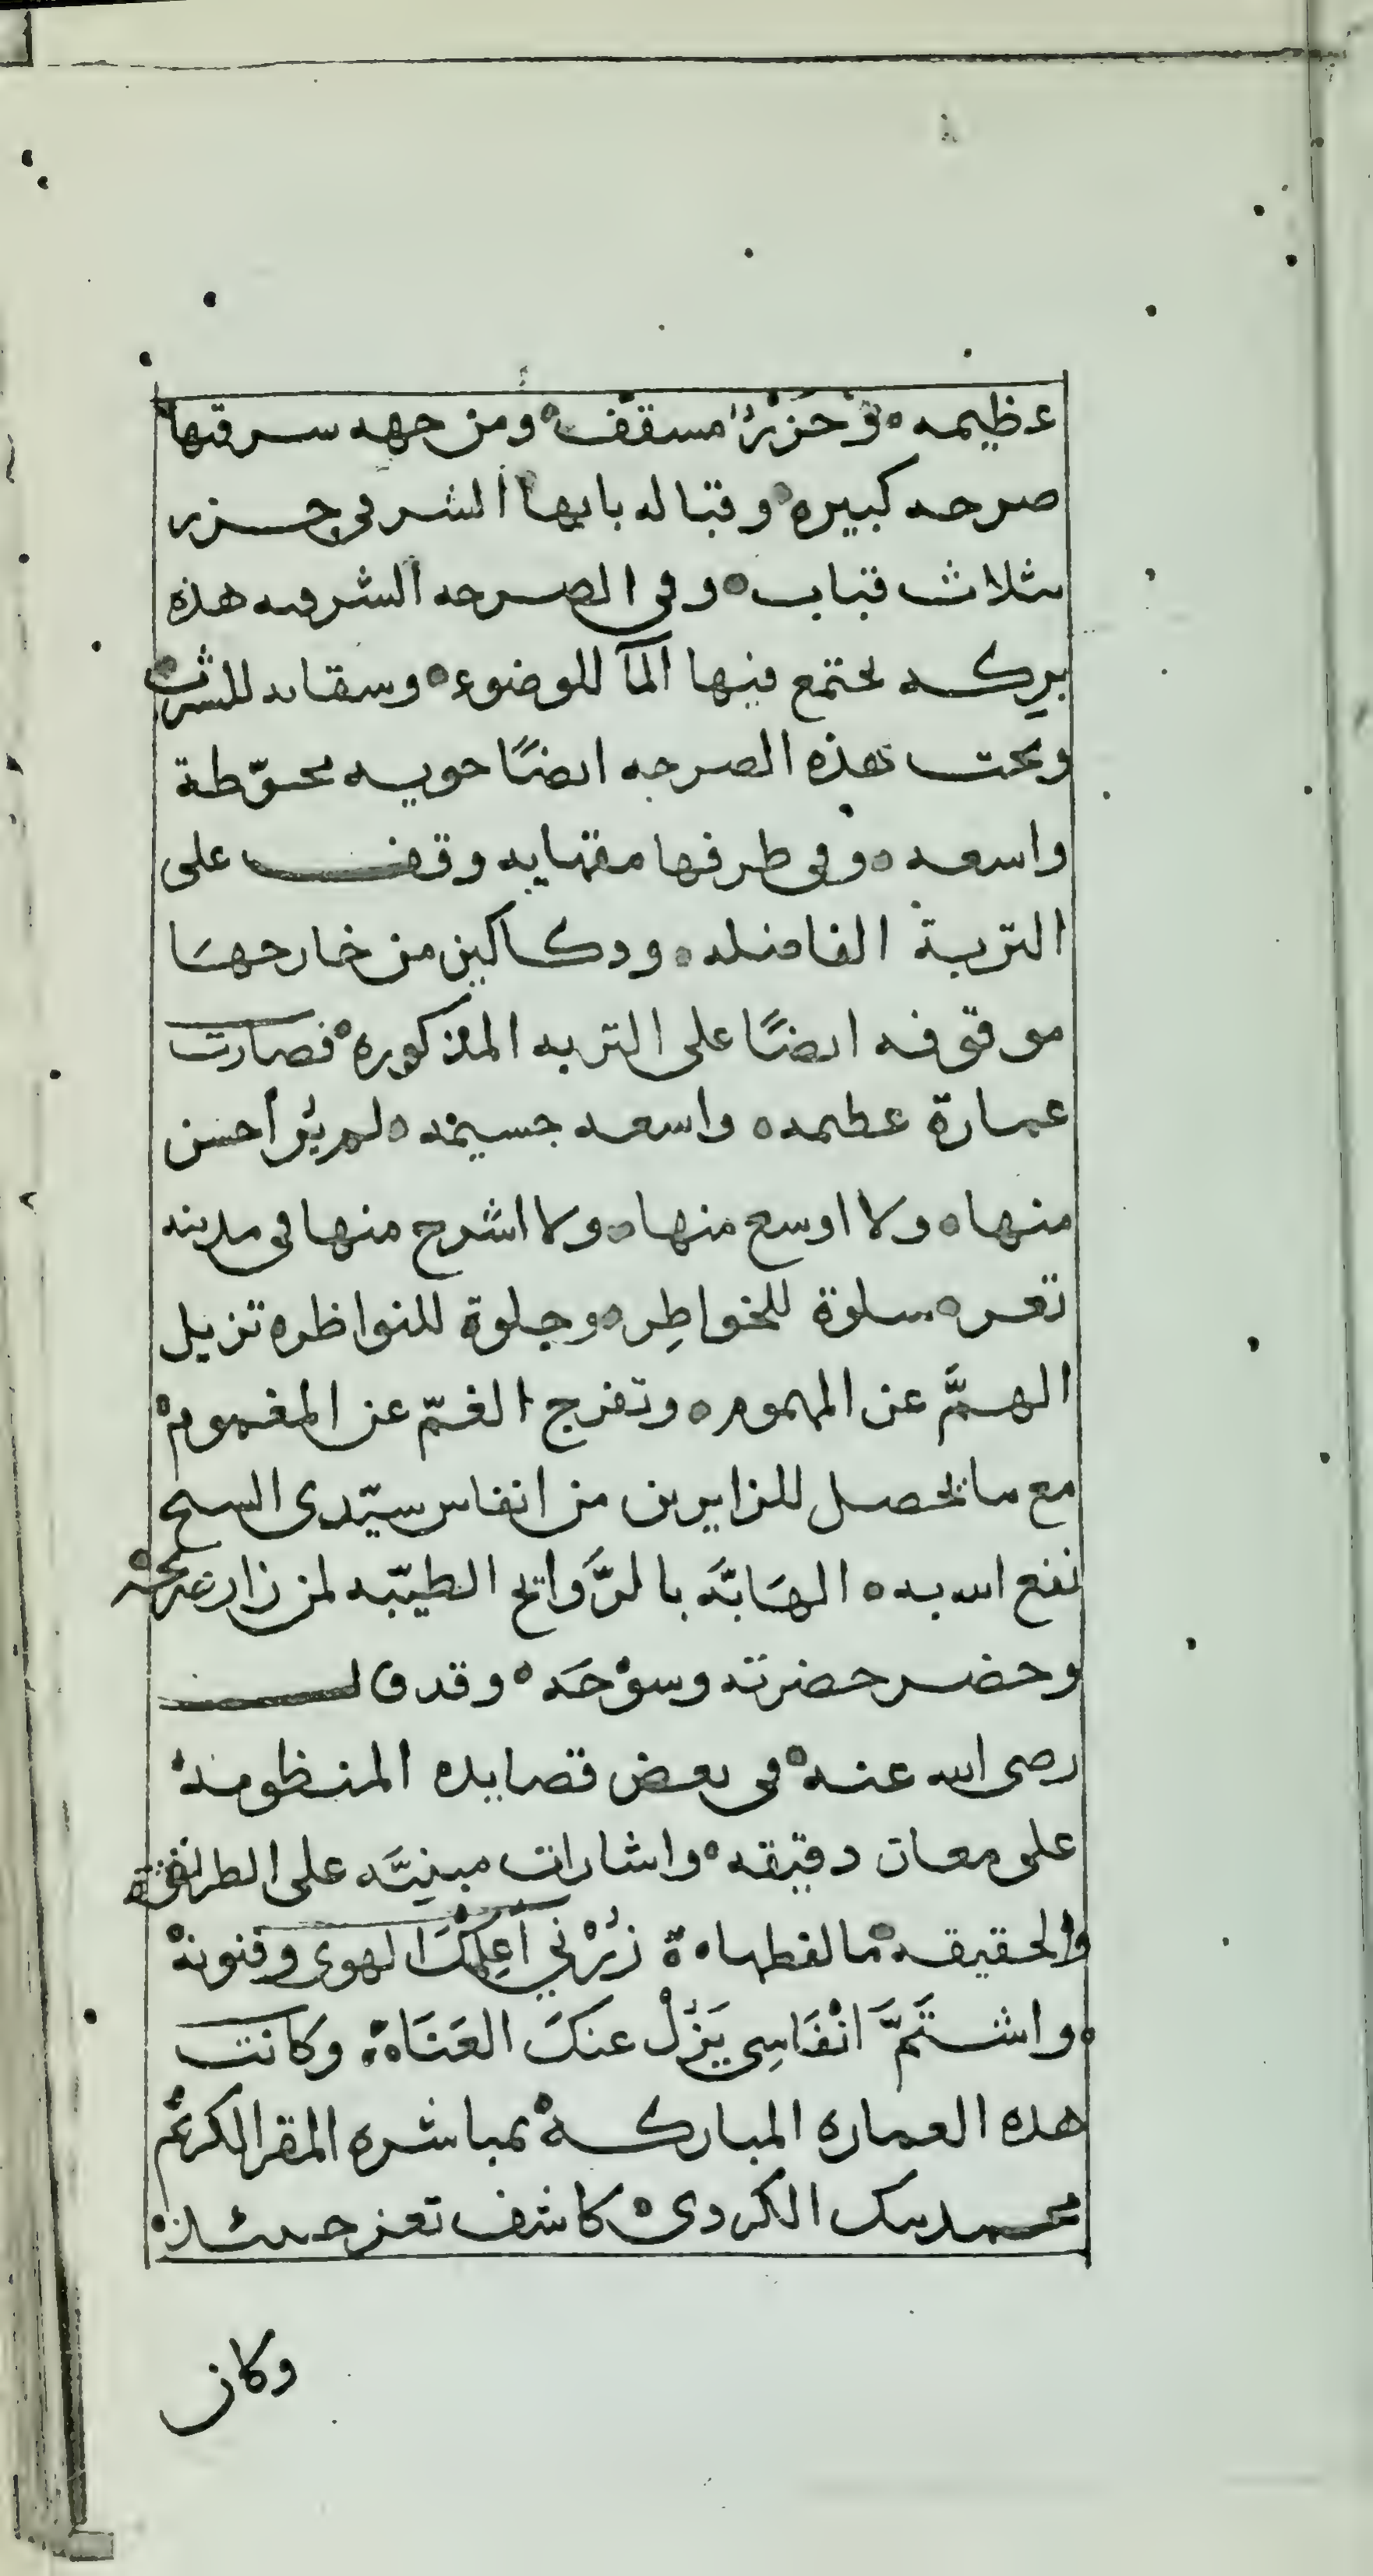 عظيمه وحزر مسقف ومن جهه سرقيها
صرحه كبيره وقباله بابها الشرقى حزر
بثلاث قباب وفى الصرحه الشرقيه هذه
بركه يجتمع فيها المآ للوضوء وسقايه للشرب
وتحت هذه الصرحه ايضًا حويه محوّطة
واسعه وفى طرفها مقهايه وقف على
التربة الفاضله ودكاكين من خارجها
موقوفه ايضًا على التربه المذكوره فصارت
عمارة عظيمه واسعه جسيمه لم ير أحسن
منها ولا اوسع منها ولا اشرح منها فى مدينه
تعز سلوة للخواطِر وجلوة للنواظر تزيل
الهمَّ عن المهموم وتفرج الغمّ عن المغموم
مع ما يحصل للزايرين من انفاس سيّدى الشيخ
نفع الله به الهَابَّه بالرَّوايح الطيّبه لمن زار ضريحه
وحضر حضرته وسوْحَه وقد قال
رضى الله عنه فى بعض قصايده المنظومه
على معان دقيقه واشارات مبنيَّه على الطريقة
والحقيقه ما لفظها زُرْني اعلمك الهوى وفنونه
واشتَمَّ انْفَاسِي يَزُلْ عنكَ العَنَاه وكانت
هذه العماره المباركة بمباشره المقر الكريم
محمد بيك الكردى كاشف تعز حينئذ
وكان